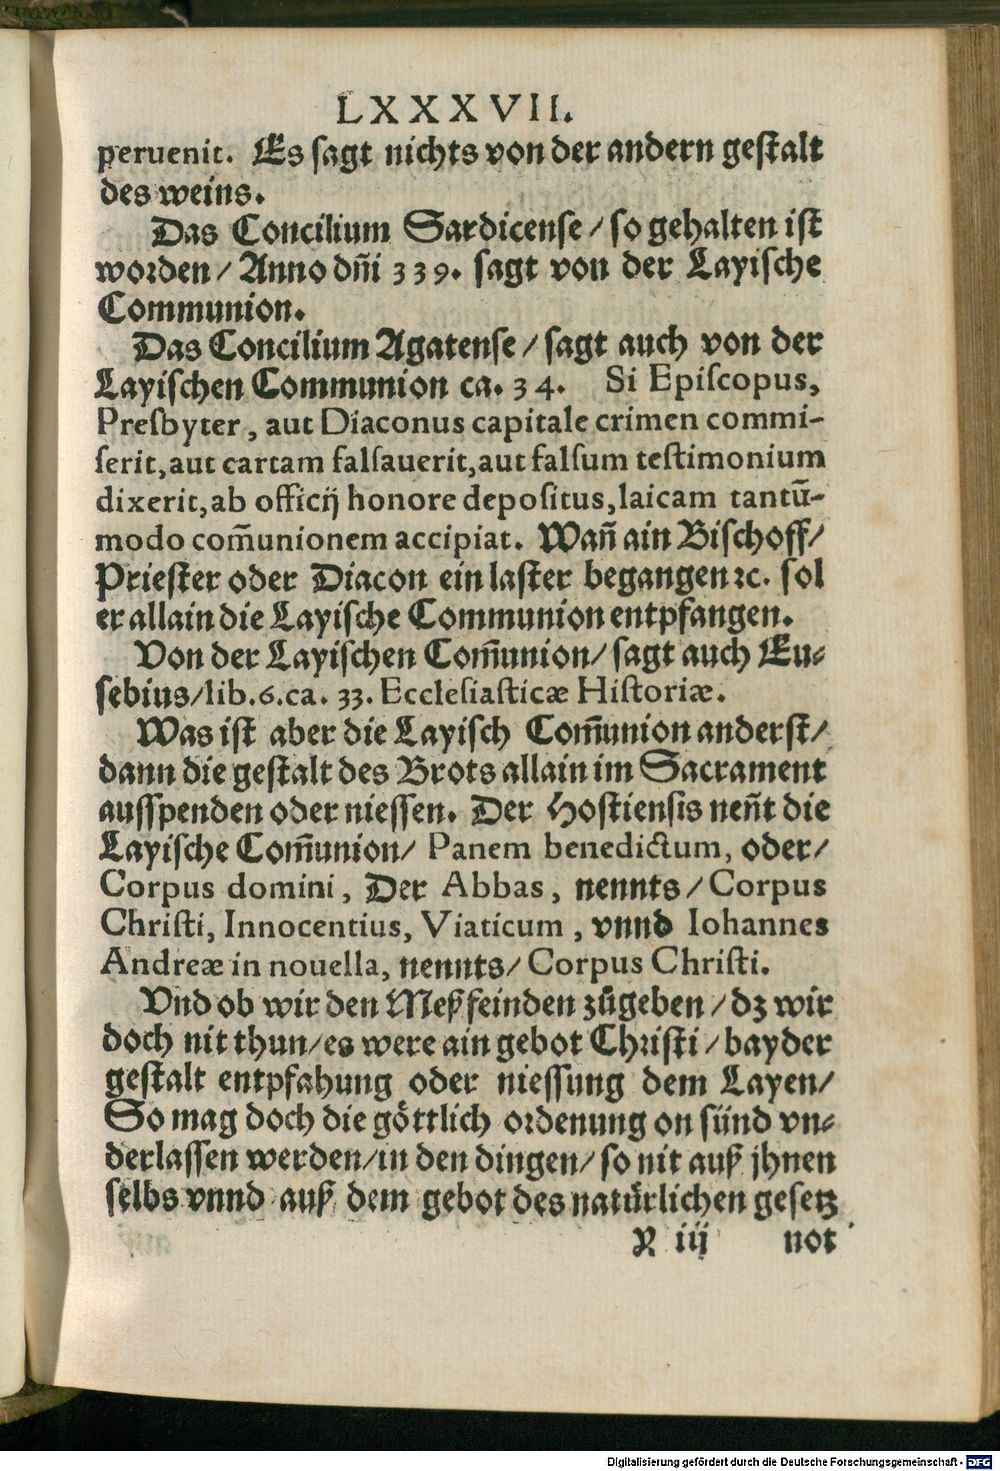 LXXXVII.
peruenit. Es sagt nichts von der andern gestalt
des weins.
Das Concilium Sardicense / so gehalten ist
worden / Anno dn̄i 339. sagt von der Layische
Communion.
Das Concilium Agatense / sagt auch von der
Layischen Communion ca. 34. Si Episcopus,
Presbyter, aut Diaconus capitale crimen commi-
serit, aut cartam falsauerit, aut falsum testimonium
dixerit, ab officij honore depositus, laicam tantū-
modo com̄unionem accipiat. Wan̄ ain Bischoff /
Priester oder Diacon ein laster begangen ꝛc. sol
er allain die Layische Communion entpfangen.
Von der Layischen Com̄union / sagt auch Eu-
sebius / lib. 6. ca. 33. Ecclesiasticæ Historiæ.
Was ist aber die Layisch Com̄union anderst /
dann die gestalt des Brots allain im Sacrament
ausspenden oder niessen. Der Hostiensis nen̄t die
Layische Com̄union / Panem benedictum, oder /
Corpus domini, Der Abbas, nennts / Corpus
Christi, Innocentius, Viaticum, vnnd Iohannes
Andreæ in nouella, nennts / Corpus Christi.
Vnd ob wir den Meßfeinden zůgeben / dz wir
doch nit thun / es were ain gebot Christi / bayder
gestalt entpfahung oder niessung dem Layen /
So mag doch die göttlich ordenung on sünd vn-
derlassen werden / in den dingen / so nit auß jhnen
selbs vnnd auß dem gebot des natürlichen gesetz
X iij not
Digitalisierung gefördert durch die Deutsche Forschungsgemeinschaft - DFG